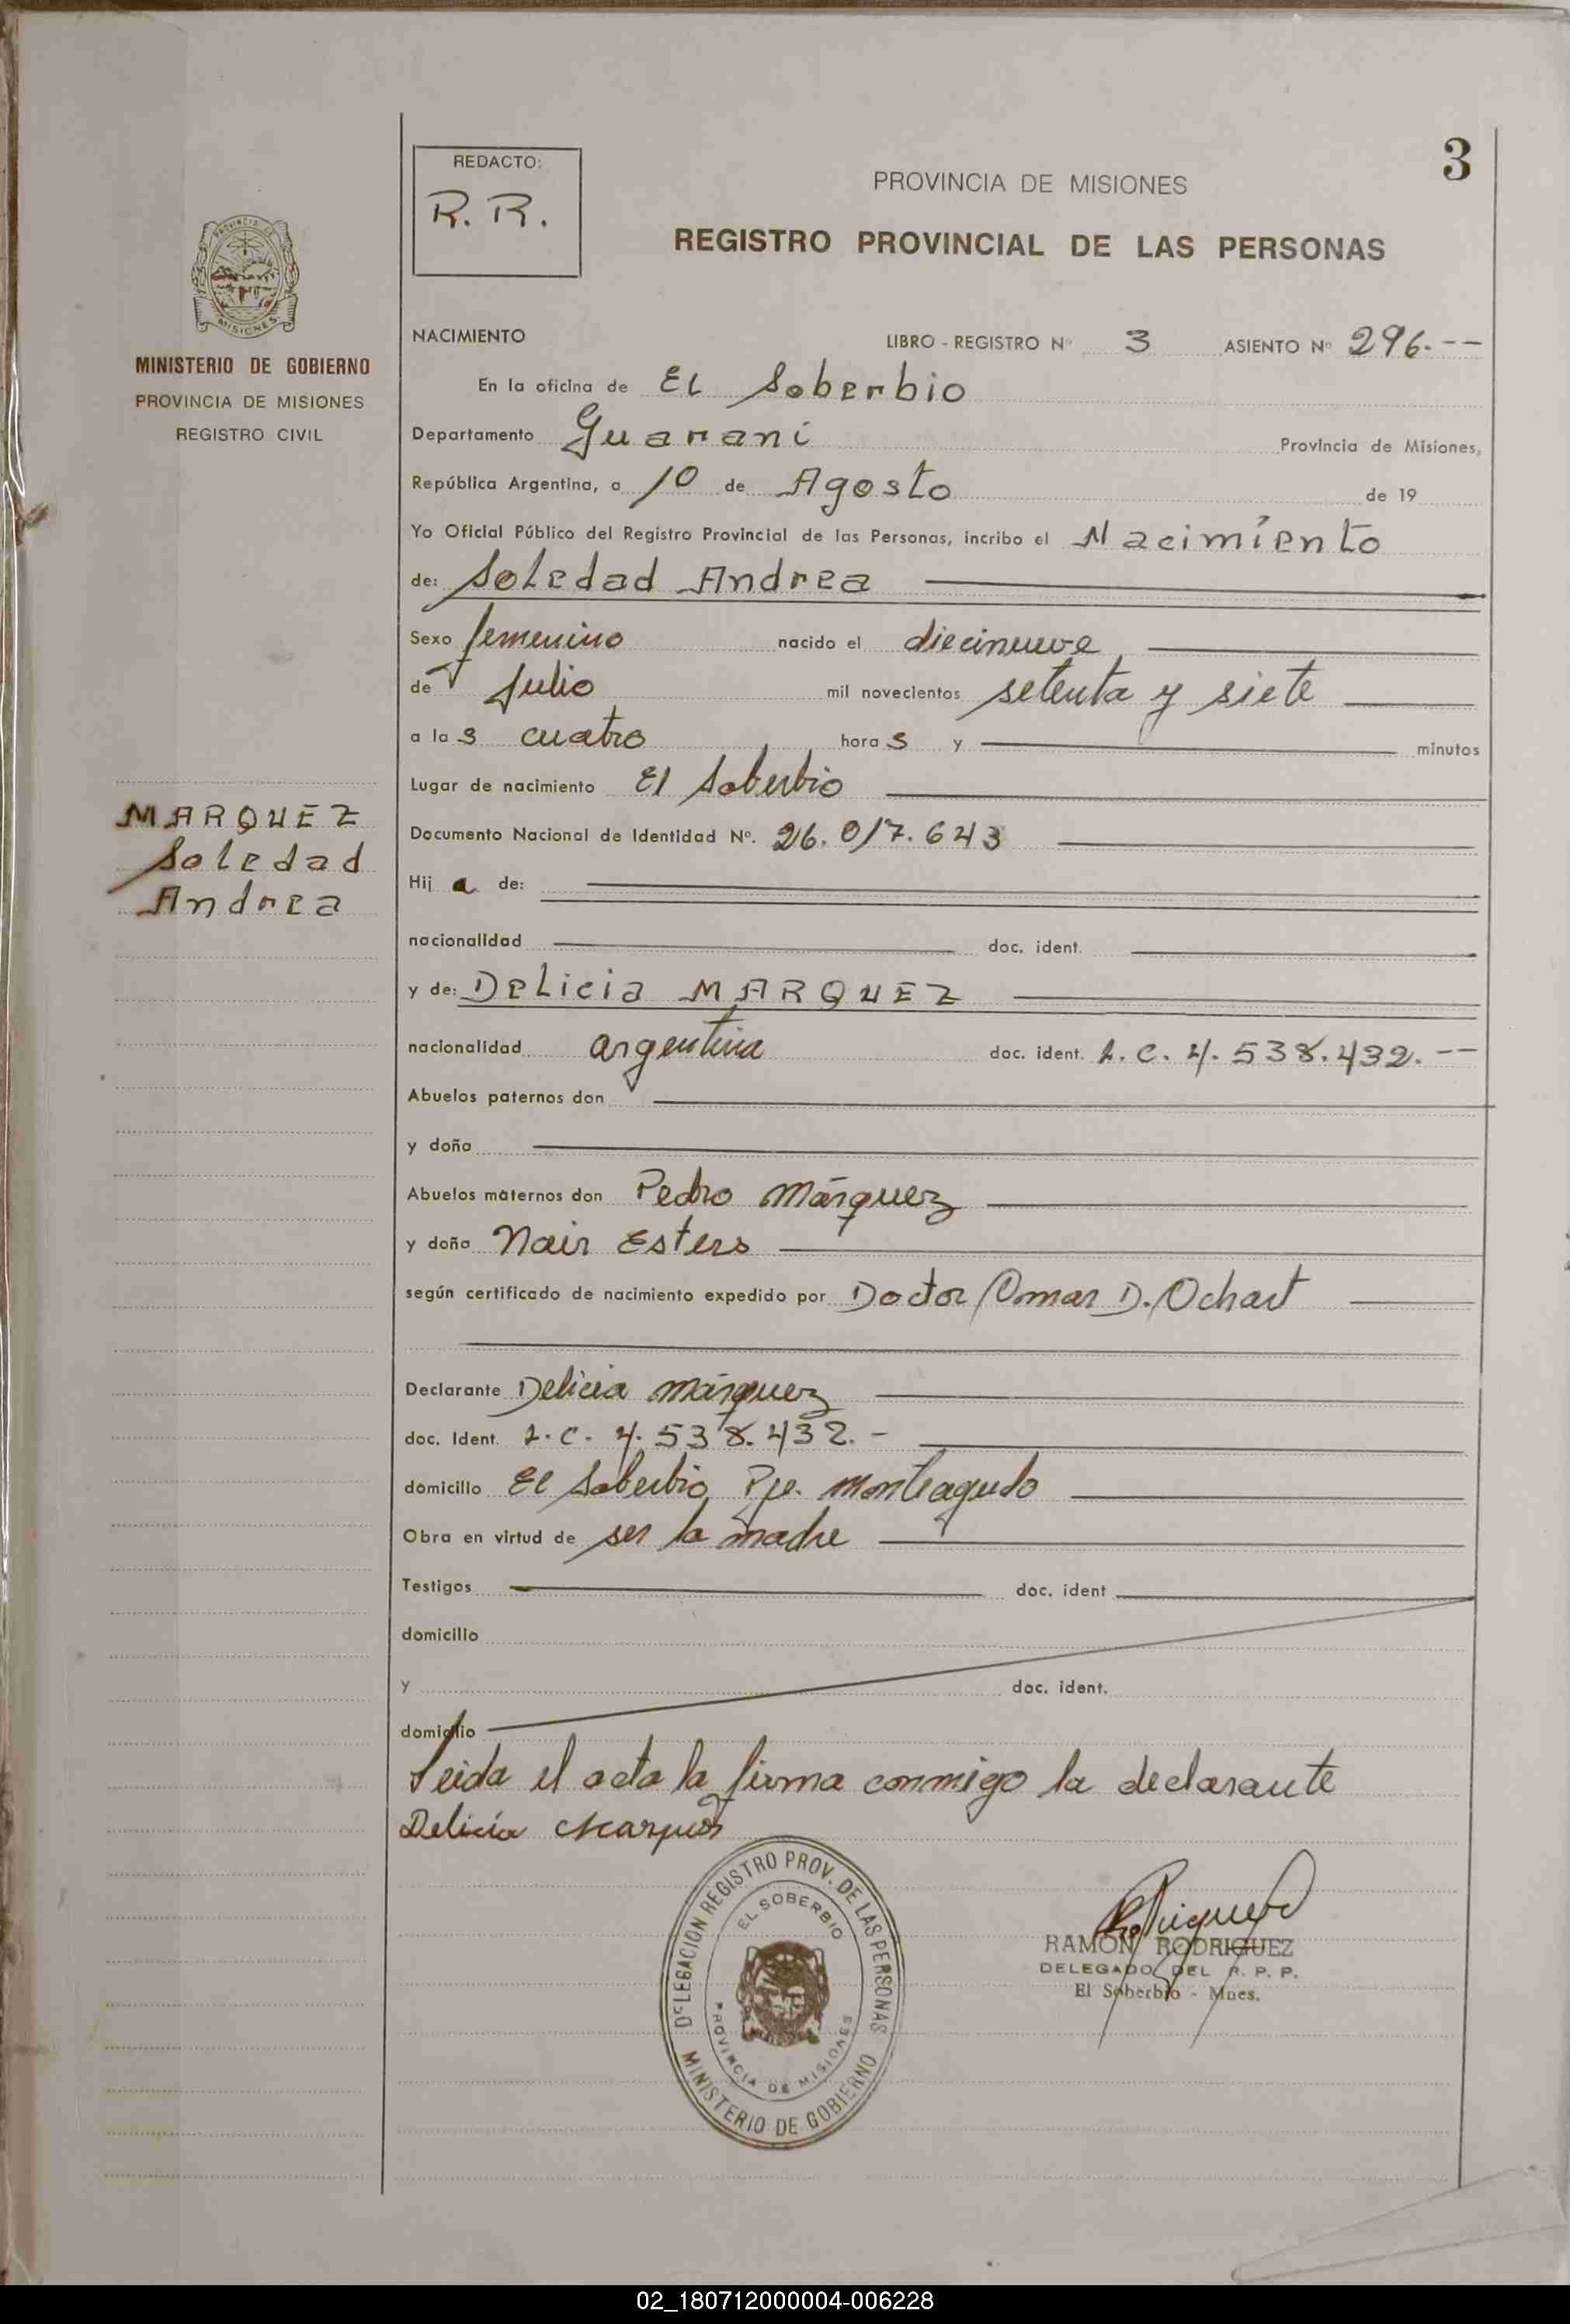 3
REDACTO:
R. R.
PROVINCIA DE MISIONES
REGISTRO PROVINCIAL DE LAS PERSONAS
MISIONES
MINISTERIO DE GOBIERNO
PROVINCIA DE MISIONES
REGISTRO CIVIL
NACIMIENTO LIBRO - REGISTRO Nº 3 ASIENTO Nº 296.--
En la oficina de EL Soberbio
Departamento Guaraní Provincia de Misiones,
República Argentina, a 10 de Agosto de 19
Yo Oficial Público del Registro Provincial de las Personas, incribo el Nacimiento
de: Soledad Andrea
Sexo femenino nacido el diecinueve
de Julio mil novecientos setenta y siete
a la s cuatro hora s y minutos
Lugar de nacimiento El Soberbio
MARQUEZ
Soledad
Andrea
Documento Nacional de Identidad Nº. 26.017.643
Hij a de:
nacionalidad doc. ident.
y de: Delicia MARQUEZ
nacionalidad argentina doc. ident. L.C. 4.538.432.--
Abuelos paternos don
y doña
Abuelos maternos don Pedro Márquez
y doña Nair Esters
según certificado de nacimiento expedido por Doctor Omar D. Ochart
Declarante Delicia Márquez
doc. Ident. L.C. 4.538.432.-
domicilio El Soberbio Pje. Monteagudo
Obra en virtud de ser la madre
Testigos doc. ident
domicilio
y doc. ident.
domicilio
Leida el acta la firma conmigo la declarante
Delicia Marques
DELEGACION REGISTRO PROV. DE LAS PERSONAS
EL SOBERBIO
PROVINCIA DE MISIONES
MINISTERIO DE GOBIERNO
RAMON RODRIGUEZ
DELEGADO DEL R. P. P.
El Soberbio - Mnes.
02_180712000004-006228